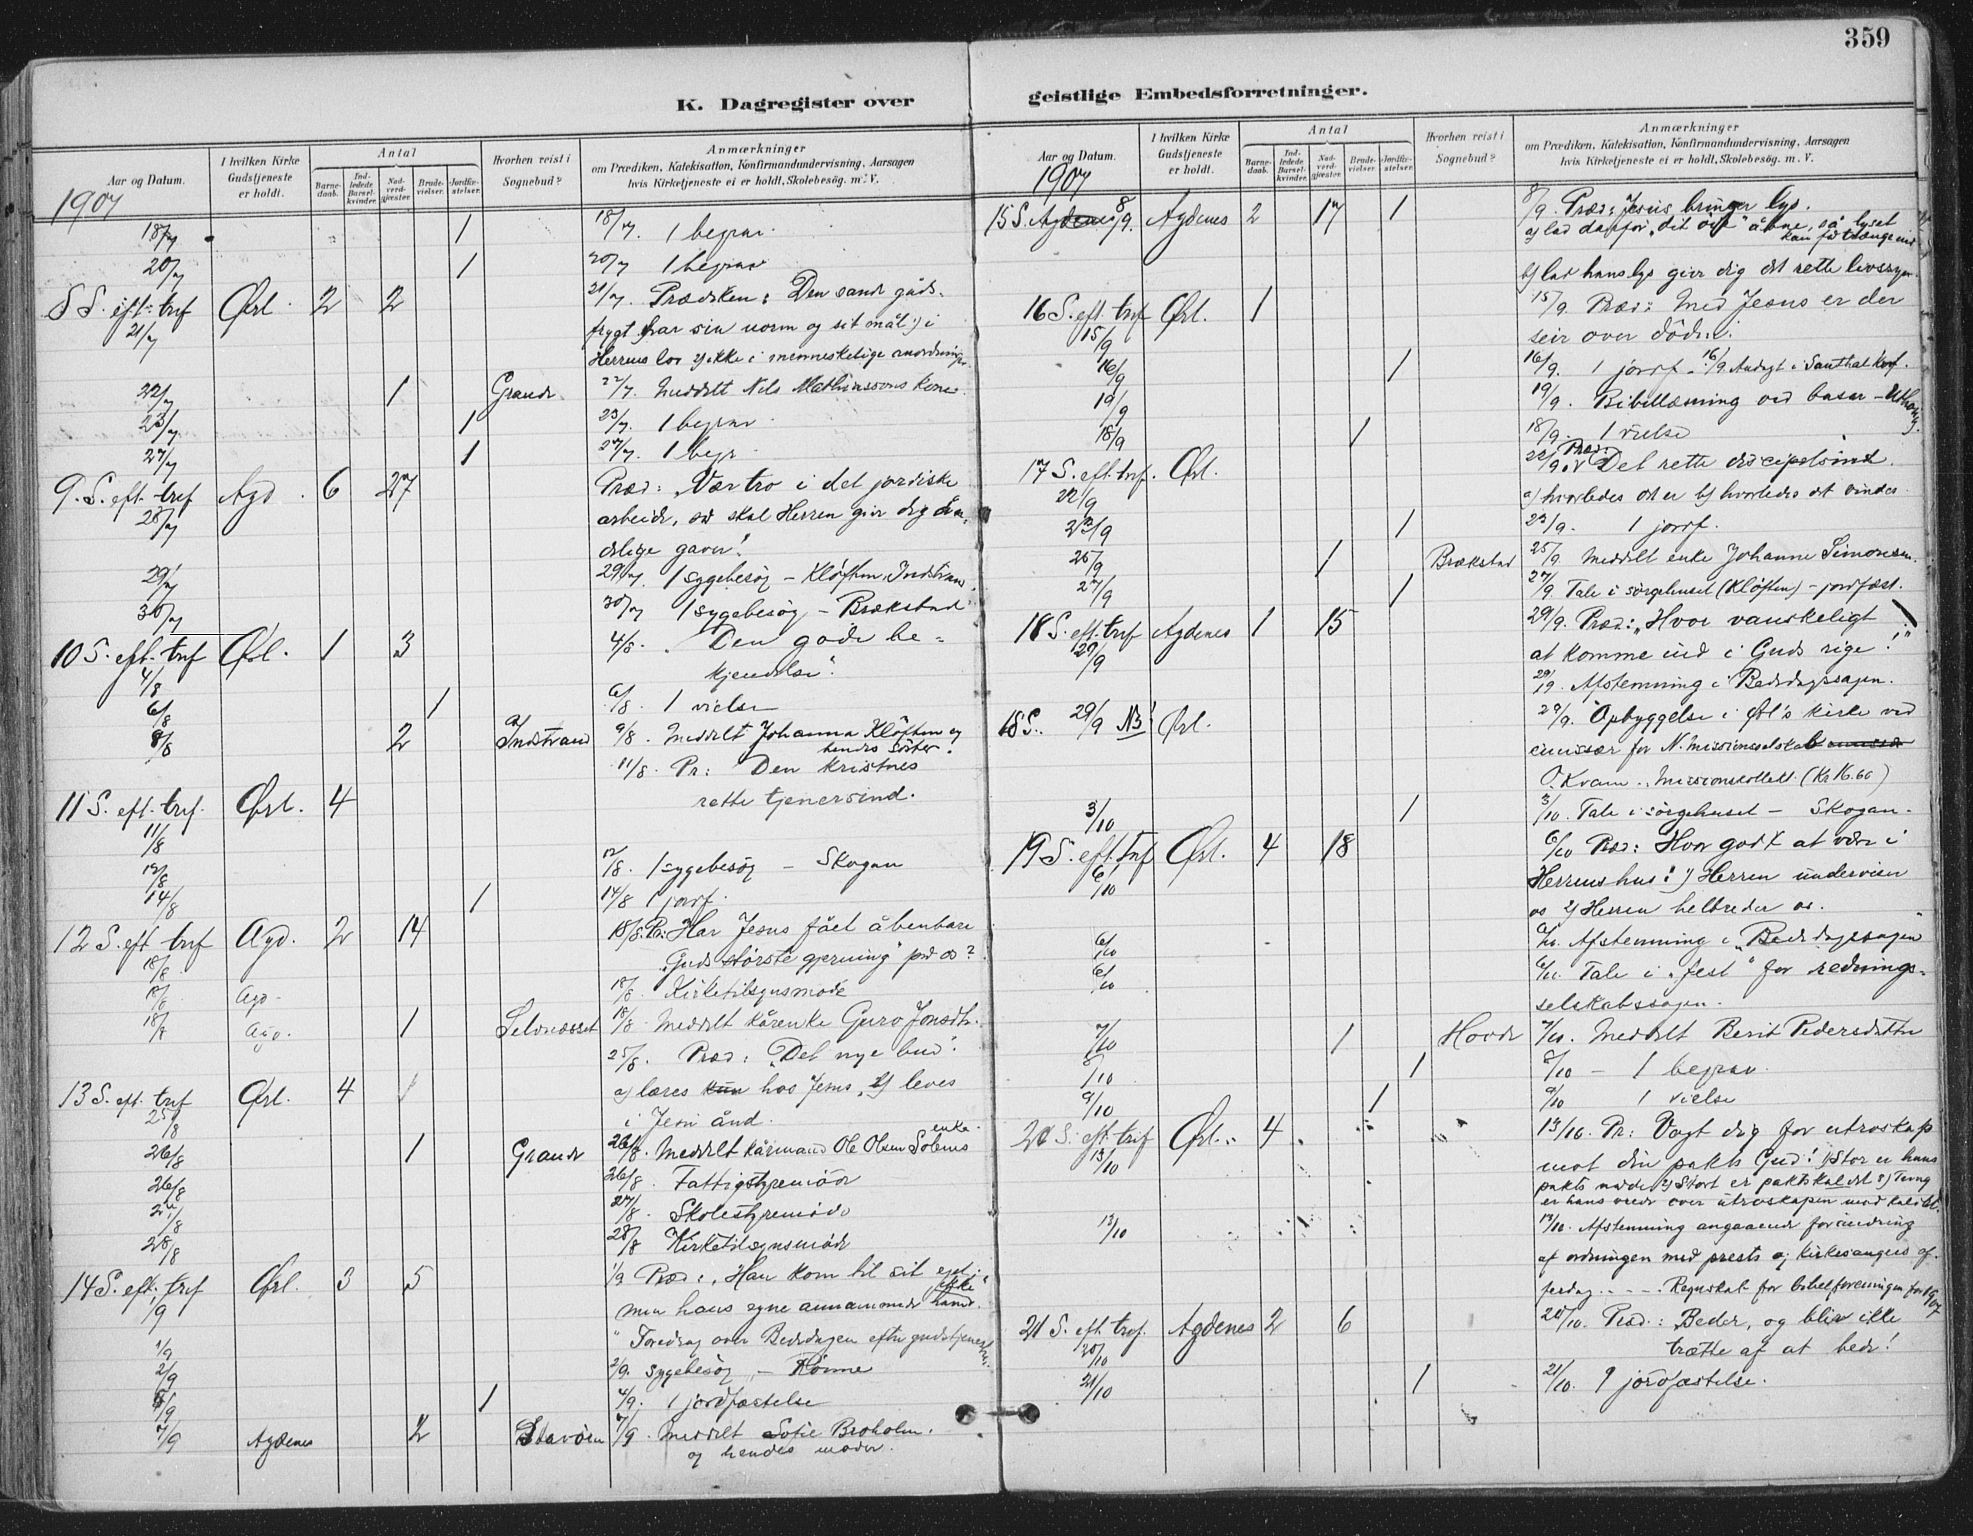 359
K. Dagregister over
geistlige Embedsforretninger.
Aar og Datum.
I hvilken Kirke Gudstjeneste er holdt.
Antal
Barnedaab.
Indledede Barselkvinder.
Nadverdgjæster.
Brudevielser.
Jordfæstelser.
Hvorhen reist i Sognebud?
Anmærkninger
om Prædiken, Katekisation, Konfirmandundervisning, Aarsagen
hvis Kirketjeneste ei er holdt, Skolebesøg. m. V.
1907
18/7 1 18/7. 1 begrav.
20/7 1 20/7 1 begrav
8 S. eft. tref Ørl. 2 2 21/7. Prædiken: Den sande guds-
21/7 frygt har sin norm og sit mål 1) i
Herrens lov 2) ikke i menneskelige anordninger.
22/7 1 Grande 22/7. Meddelt Nils Mathiassons kone
23/7 1 23/7. 1 begrav
27/7 1 27/7. 1 begr.
9. S. eft. tref Agd. 6 27 Præd: "Vær tro i det jordiske
28/7 arbeide, så skal Herren give dig ån-
delige gaver".
29/7 29/7. 1 sygebesøg – Kløften, Indstrand
30/7 30/7 1 sygebesøg – Brækstad
10 S. eft. tref Ørl. 1 3 4/8. "Den gode be-
4/8 kjendelse".
6/8 1 6/8. 1 vielse
8/8 2 Indstrand 9/8. Meddelt Johanna Kløften og
hendes søster.
11/8. Pr: Den kristnes
11 S. eft. tref. Ørl. 4 rette tjenersind.
11/8
12/8 12/8. 1 sygebesøg – Skogan
14/8 1 14/8 1 jordf.
12 S. eft tref Agd. 2 14 18/8. Pr: Har Jesus fået åbenbare
18/8 "Guds største gjerning" på os?
18/8 Agd. 18/8. Kirketilsynsmøde
18/8 Agd. 1 Selvnæsset 18/8. Meddelt kårenke Guro Jonsdtr.
25/8. Præd: "Det nye bud".
13 S. eft. tref Ørl. 4 1 a) læres kun hos Jesus, b) leves
25/8 i Jesu ånd.
26/8 1 Grande 26/8. Meddelt kårmand Ole Olsen Solems enke.
26/8 26/8. Fattigstyremøde
27/8 27/8. Skolestyremøde
28/8 28/8 Kirketilsynsmøde
14 S. eft. tref Ørl. 3 5 1/9 Præd: "Han kom til sit eget,
1/9 men hans egne annammede ham ikke".
1/9 " Foredrag over Bededagen efter gudstjenesten.
2/9 2/9. Sygebesøg – Rønne
4/9 1 4/9. 1 jordfæstelse
7/9 Agdenes 2 Stavøen 7/9. Meddelt Sofie Broholm.
og hendes moder.
Aar og Datum.
I hvilken Kirke Gudstjeneste er holdt.
Antal
Barnedaab.
Indledede Barselkvinder.
Nadverdgjæster.
Brudevielser.
Jordfæstelser.
Hvorhen reist i Sognebud?
Anmærkninger
om Prædiken, Katekisation, Konfirmandundervisning, Aarsagen
hvis Kirketjeneste ei er holdt, Skolebesøg. m. V.
1907
15 S. Agdenes 8/9. Agdenes 2 17 1 8/9. Præd: Jesus bringer lys.
a) lad derfor "dit øie" åbne, så lyset
kan få trænge ind
b) lad hans lys give dig det rette livssyn.
16 S. eft. tref Ørl. 1 15/9. Præd: Med Jesus er der
15/9 seir over døden.
16/9 1 16/9. 1 jordf. 16/9. Andagt i Santhalkvf.
19/9 19/9. Bibellæsning ved basar – Uthaug.
18/9 1 18/9. 1 vielse
17 S. eft. tref. Ørl. 22/9. Præd: Det rette discipelsind.
22/9 a) hvorledes det er b) hvorledes det vindes.
23/9 1 23/9. 1 jordf.
25/9 1 Brækstad 25/9. Meddelt enke Johanne Simonsen
27/9 1 27/9. Tale i sørgehuset (Kløften) – jordfæst.
18 S. eft. tref Agdenes 1 15 29/9. Præd: "Hvor vanskeligt
29/9 at komme ind i Guds rige!"
29/9. Afstemning i Bededagssagen.
18 S. 29/9 NB! Ørl. 29/9. Opbyggelse i Ørl's kirke ved
emissær for N. Missionsselskab
O. Kvam. Missionskollekt. (Kr 16.60)
3/10 1 3/10. Tale i sørgehuset – Skogan.
19 S. eft. tref Ørl. 4 18 6/10 Præd: Hvor godt at være i
6/10 Herrens hus! 1) Herren underviser
os 2) Herren helbreder os.
6/10 6/10. Afstemning i "Bededagssagen"
6/10 6/10. Tale i "fest" for rednings-
selskabssagen.
7/10 1 Hovde 7/10. Meddelt Berit Pedersdatter
8/10 1 8/10 – 1 begrav.
9/10 1 9/10 1 vielse
20 S. eft. tref Ørl. 4 13/10. Pr: Vogt dig for utroskap
13/10 mot din pakts Gud! 1) Stor er hans
pakts nåde 2) Stort er paktskaldet 3) Tung
er hans vrede over utroskapen mod kaldet.
13/10 13/10. Afstemning angaaende forandring
af ordningen med prests og kirkesangers af-
ferdag. – – – Regnskab for bibelforeningen for 1907
21 S. eft. tref. Agdenes 2 6 20/10. Præd: Beder, og bliv ikke
20/10 trætte af at bede!
21/10 1 21/10. 1 jordfæstelse.